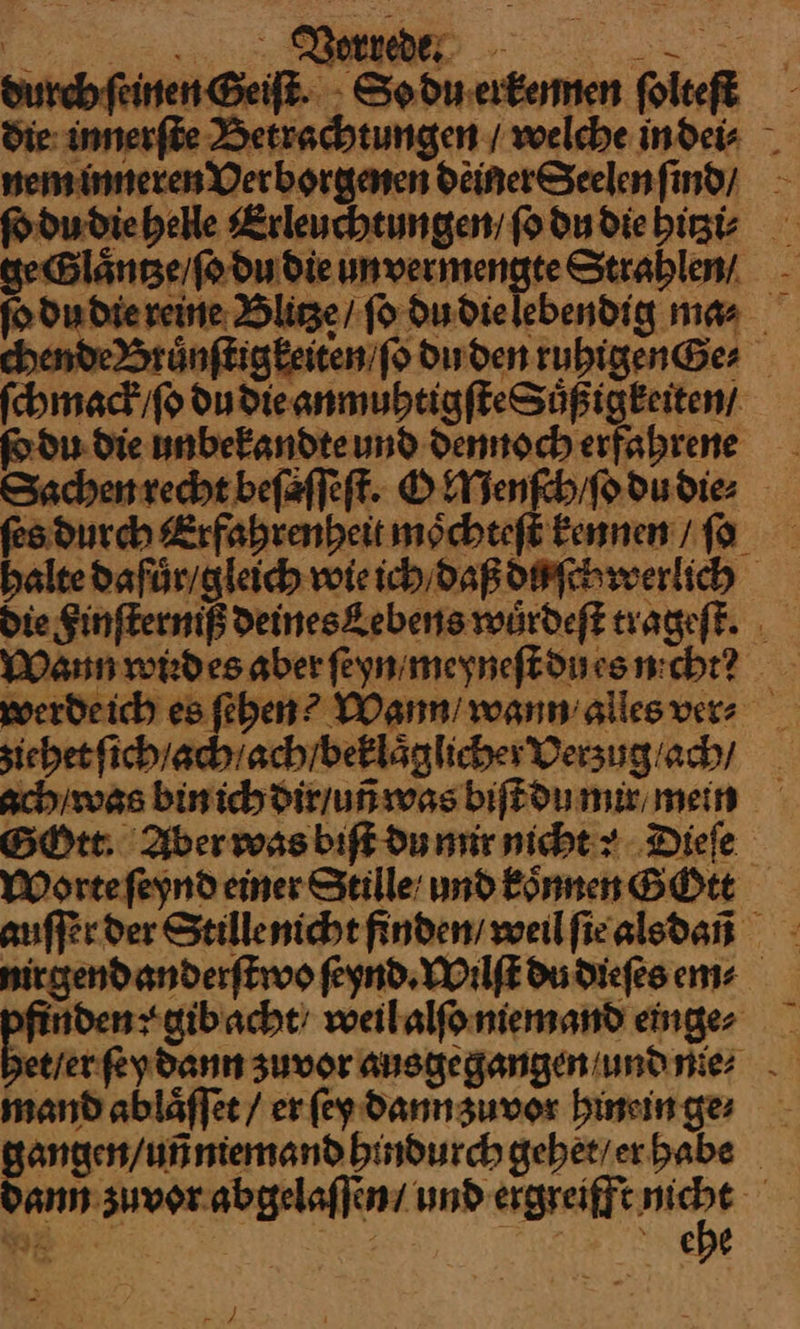 Vorrede.
durch ſeinen Geiſt. So du erkennen ſolteſt
die innerſte Betrachtungen / welche in dei⸗
nem inneren Verborgenen deiner Seelen ſind/
ſo du die helle Erleuchtungen/ ſo du die hitzi⸗
ge Glaͤntze/ſo du die unvermengte Strahlen/
ſo du die reine Blitze / ſo du die lebendig ma⸗
chende Bruͤnſtigkeiten/ſo du den ruhigen Ge⸗
ſchmack/ſo du die anmuhtigſte Suͤßigkeiten/
ſo du die unbekandte und dennoch erfahrene
Sachen recht beſaͤſſeſt. O Menſch/ſo du die⸗
ſes durch Erfahrenheit moͤchteſt kennen / ſo
halte dafuͤr/gleich wie ich/daß du ſchwerlich
die Finſterniß deines Lebens wuͤrdeſt trageſt.
Wann wird es aber ſeyn/meyneſt du es nicht?
werde ich es ſehen? Wann/ wann/ alles ver⸗
ziehet ſich/ach/ach/beklaͤglicher Verzug/ach/
ach/was bin ich dir/uñ was biſt du mir/ mein
GOtt. Aber was biſt du mir nicht? Dieſe
Worte ſeynd einer Stille/ und koͤnnen GOtt
auſſer der Stille nicht finden/ weil ſie alsdañ
nirgend anderſtwo ſeynd. Wilſt du dieſes em⸗
pfinden? gib acht/ weil alſo niemand einge⸗
het/er ſey dann zuvor ausgegangen/und nie⸗
mand ablaͤſſet / er ſey dann zuvor hinein ge⸗
gangen/uñ niemand hindurch gehet/er habe
dann zuvor abgelaſſen/ und ergreifft nicht
ehe